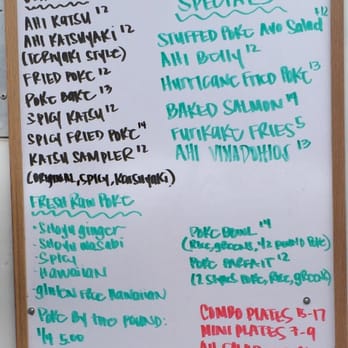 AHI KATSU 12
AHI KATSUYAKI 12
(TERIYAKI STYLE)
FRIED POKE 12
POKE BAKE 13
SPICY KATSU 12
SPICY FRIED POKE 14
KATSU SAMPLER 12
(ORIGINAL, SPICY, KATSUYAKI)
SPECIALS
STUFFED POKE AVO SALAD 12
AHI BELLY 12
HURRICANE FRIED POKE 13
BAKED SALMON 14
FURIKAKE FRIES 5
AHI 13
FRESH RAW POKE
· SHOYU GINGER
· SHOYU WASABI
· SPICY
· HAWAIIAN
· GLUTEN FREE HAWAIIAN
POKE BY THE POUND:
1/4 5.00
POKE BOWL 14
(RICE, GREENS, 1/2 POUND POKE)
POKE PARFAIT 12
(2 STYLES POKE, RICE, GREENS)
COMBO PLATES 15-17
MINI PLATES 7-9